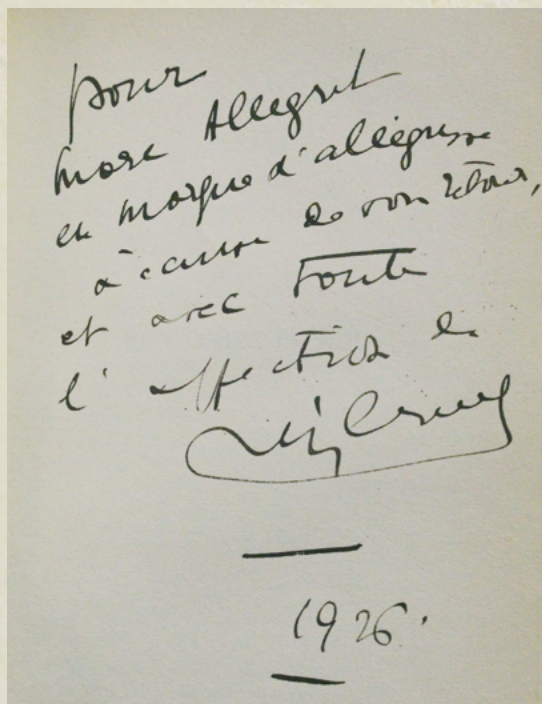 pour
Marc Allegret
en marque d'allégresse
à cause de son retour,
et avec toute
l'affection de
1926.